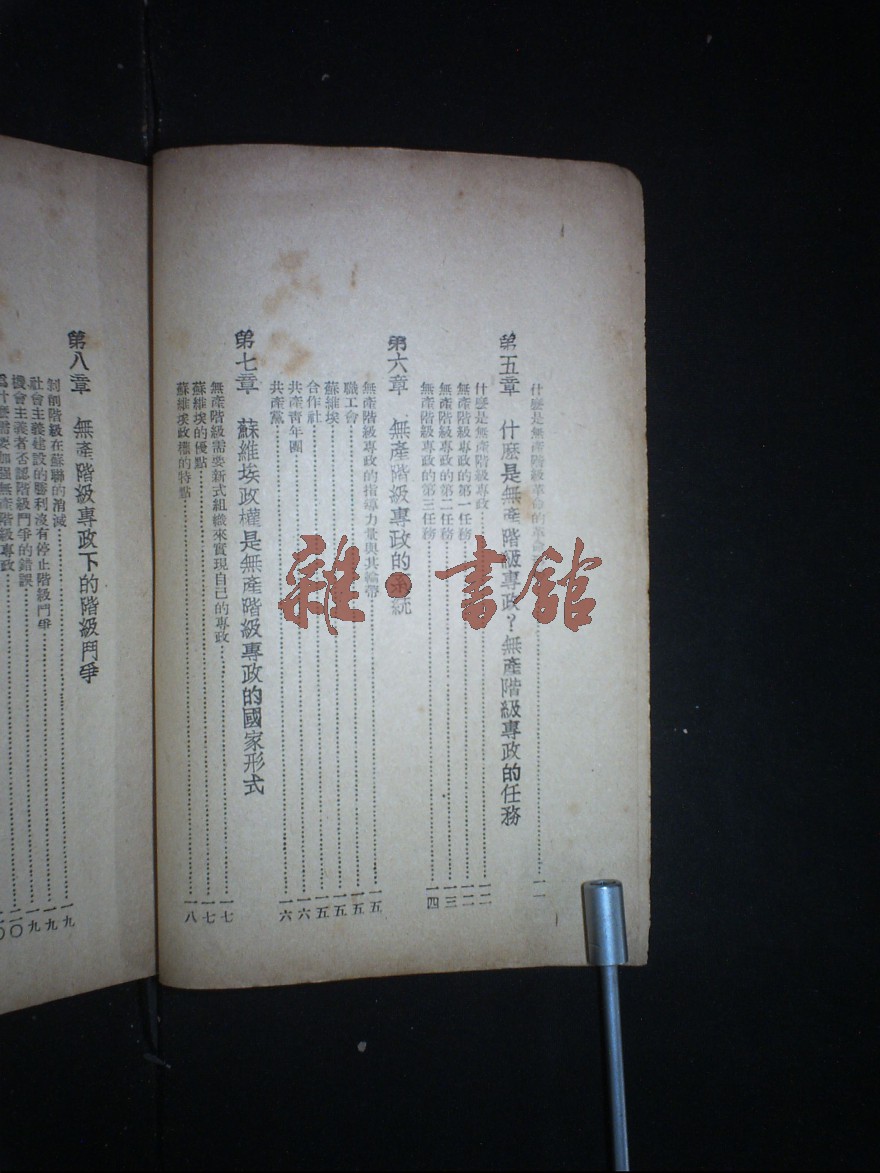 什麼是無產階級革命的革命
一一
第五章 什麽是無產階級專政?無產階級專政的任務
什麽是無產階級專政……一一
無產階級專政的第一任務……一二
無產階級專政的第二任務……一三
無產階級專政的第三任務……一四
第六章 無產階級專政的系統
無產階級專政的指導力量與其輪帶……一五
職工會……一五
蘇維埃……一五
合作社……一五
共產青年團……一六
共產黨……一六
第七章 蘇維埃政權是無產階級專政的國家形式
無產階級需要新式組織來實現自己的專政……一七
蘇維埃的優點……一七
蘇維埃政權的特點……一八
第八章 無產階級專政下的階級鬥爭
剝削階級在蘇聯的消滅……一九
社會主義建設的勝利沒有停止階級鬥爭……一九
機會主義者否認階級鬥爭的錯誤……二〇
爲什麽需要加强無產階級專政
雜·書館